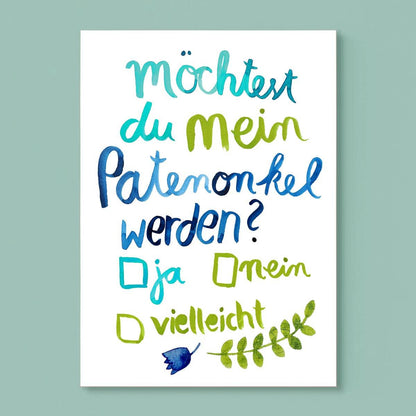 möchtest
du mein
Patenonkel
werden?
ja nein
vielleicht